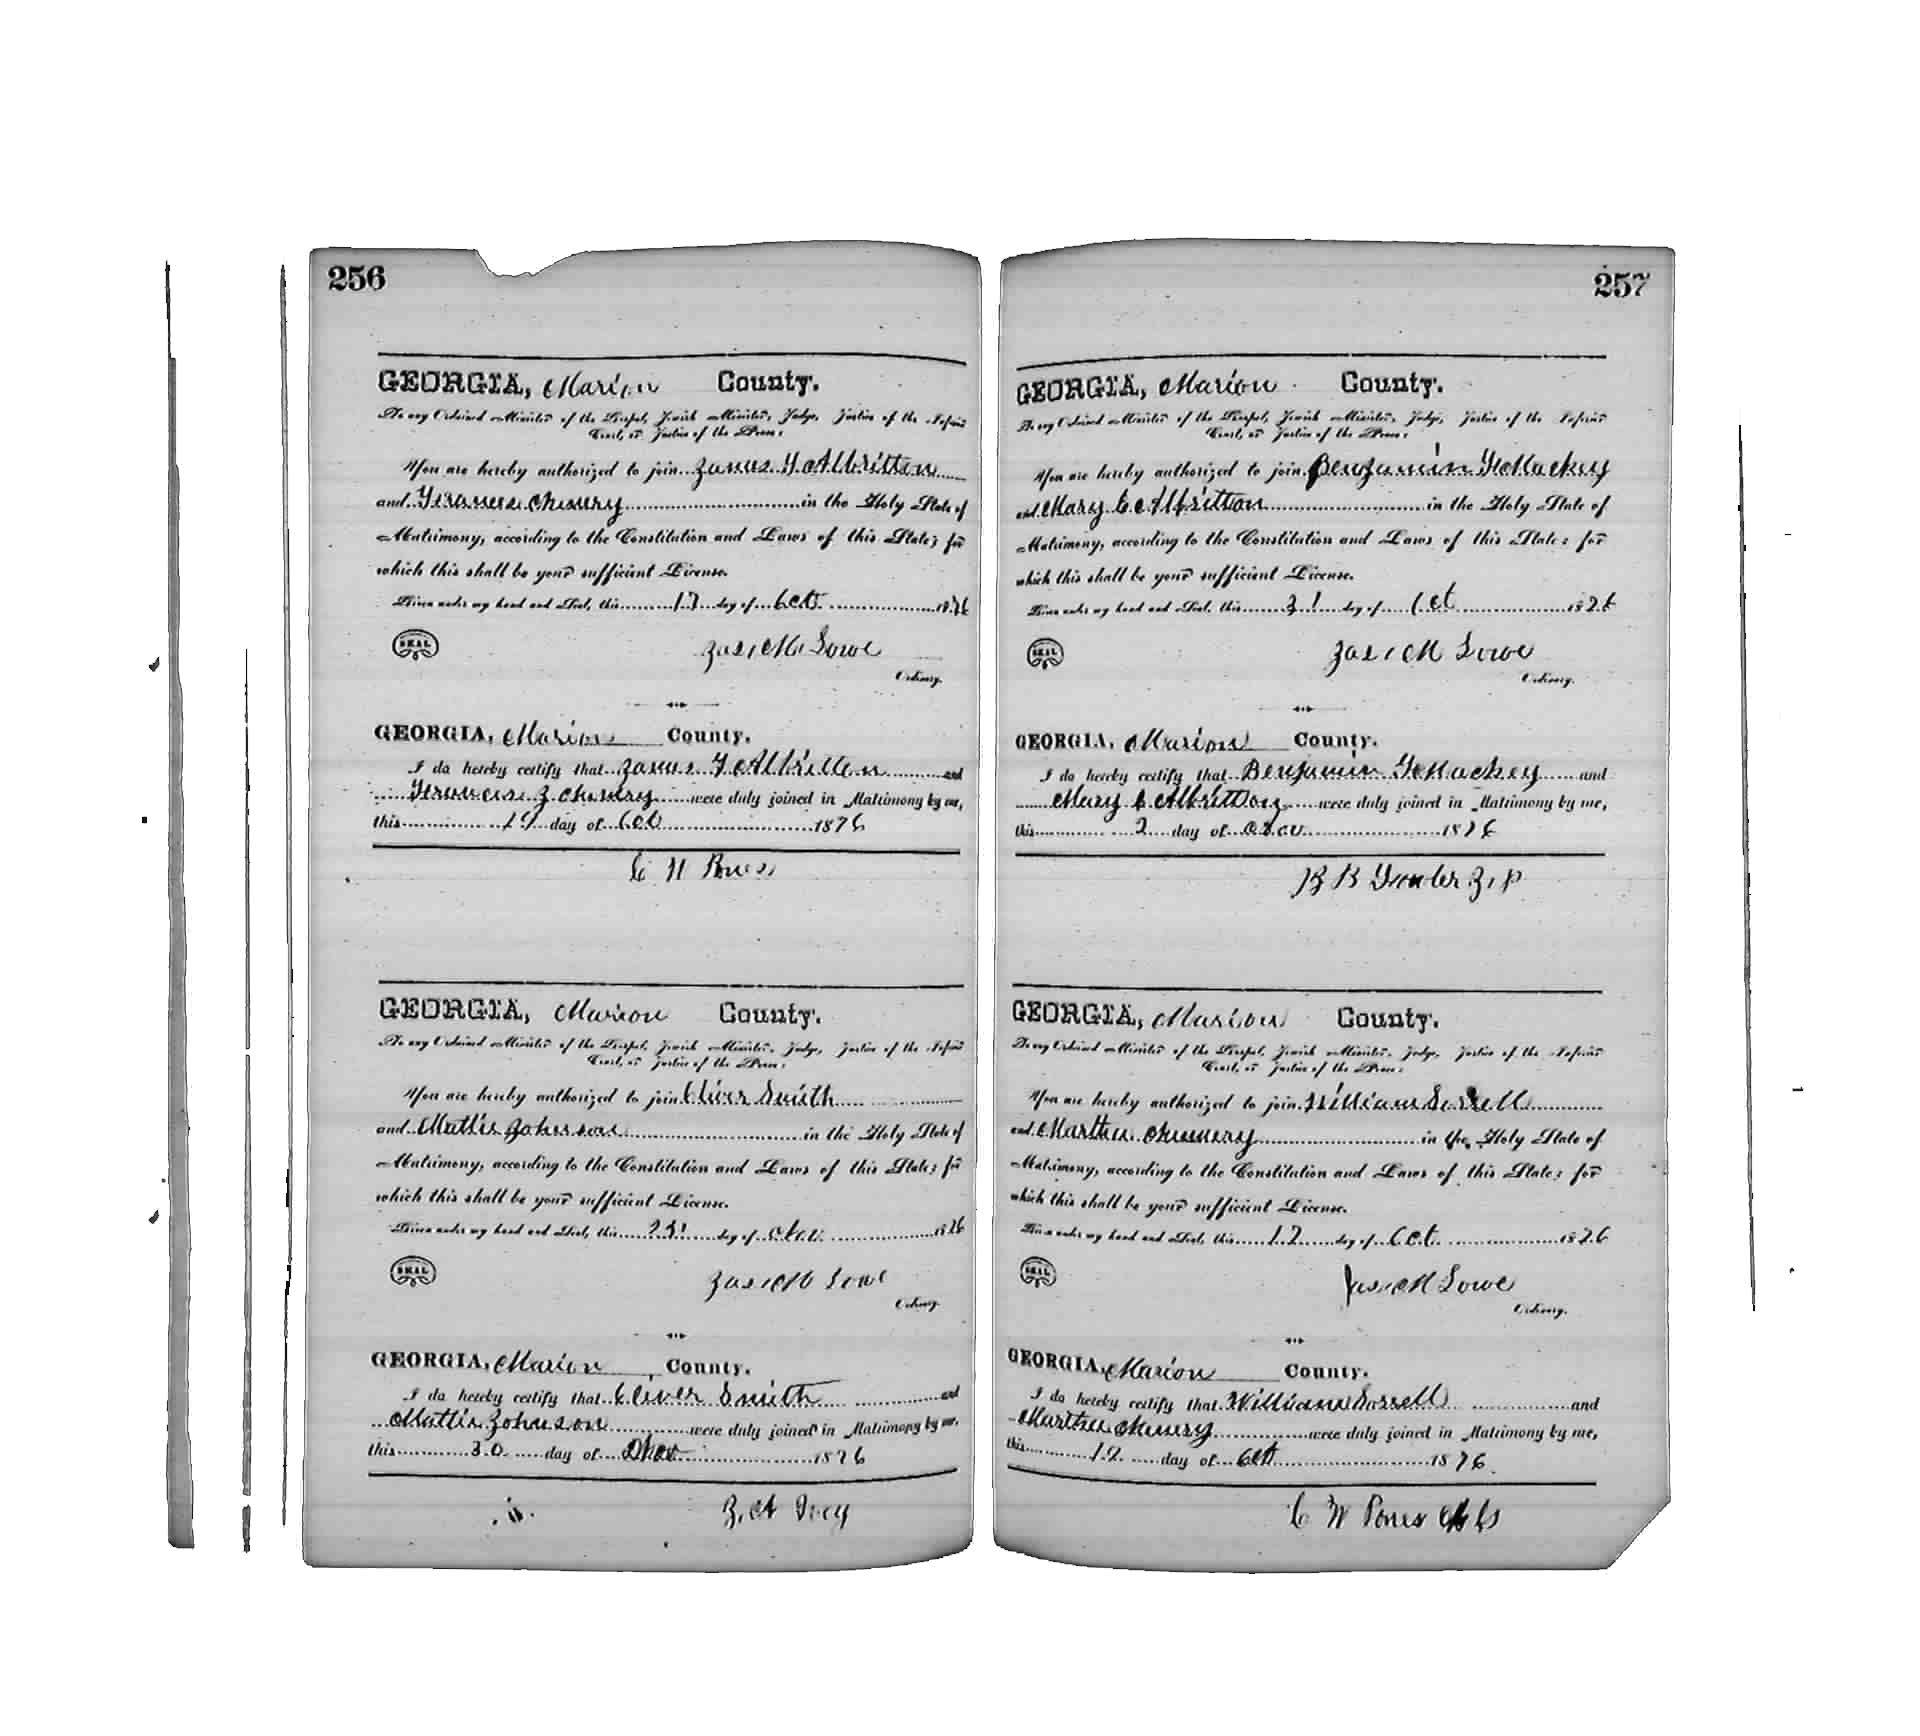 256
GEORGIA, Marion County.
To any Ordained Minister of the Gospel, Jewish Minister, Judge, Justice of the Inferior
Court, or Justice of the Peace:
You are hereby authorized to join James Albritton
and Chenery in the Holy State of
Matrimony, according to the Constitution and Laws of this State; for
which this shall be your sufficient License.
Given under my hand and Seal, this day of Oct 1876
SEAL
Jas. M Lowe
Ordinary.
GEORGIA, Marion County.
I do hereby certify that James Albritton and
were duly joined in Matrimony by me,
this 19 day of Oct 1876
GEORGIA, Marion County.
To any Ordained Minister of the Gospel, Jewish Minister, Judge, Justice of the Inferior
Court, or Justice of the Peace:
You are hereby authorized to join Oliver Smith
and Mattie Johnson in the Holy State of
Matrimony, according to the Constitution and Laws of this State; for
which this shall be your sufficient License.
Given under my hand and Seal, this day of Nov 1876
SEAL
Jas. M Lowe
Ordinary.
GEORGIA, Marion County.
I do hereby certify that Oliver Smith and
Mattie Johnson were duly joined in Matrimony by me,
this 30 day of Nov 1876
Ivey
257
GEORGIA, Marion County.
To any Ordained Minister of the Gospel, Jewish Minister, Judge, Justice of the Inferior
Court, or Justice of the Peace:
You are hereby authorized to join Benjamin Mackey
and Mary E Albritton in the Holy State of
Matrimony, according to the Constitution and Laws of this State; for
which this shall be your sufficient License.
Given under my hand and Seal, this 31 day of Oct 1876
SEAL
Jas. M Lowe
Ordinary.
GEORGIA, Marion County.
I do hereby certify that Benjamin Mackey and
Mary E Albritton were duly joined in Matrimony by me,
this 2 day of Nov 1876
GEORGIA, Marion County.
To any Ordained Minister of the Gospel, Jewish Minister, Judge, Justice of the Inferior
Court, or Justice of the Peace:
You are hereby authorized to join William Sorrell
and Martha Chenery in the Holy State of
Matrimony, according to the Constitution and Laws of this State; for
which this shall be your sufficient License.
Given under my hand and Seal, this day of Oct 1876
SEAL
Jas. M Lowe
Ordinary.
GEORGIA, Marion County.
I do hereby certify that William Sorrell and
Martha Chenery were duly joined in Matrimony by me,
this day of Oct 1876